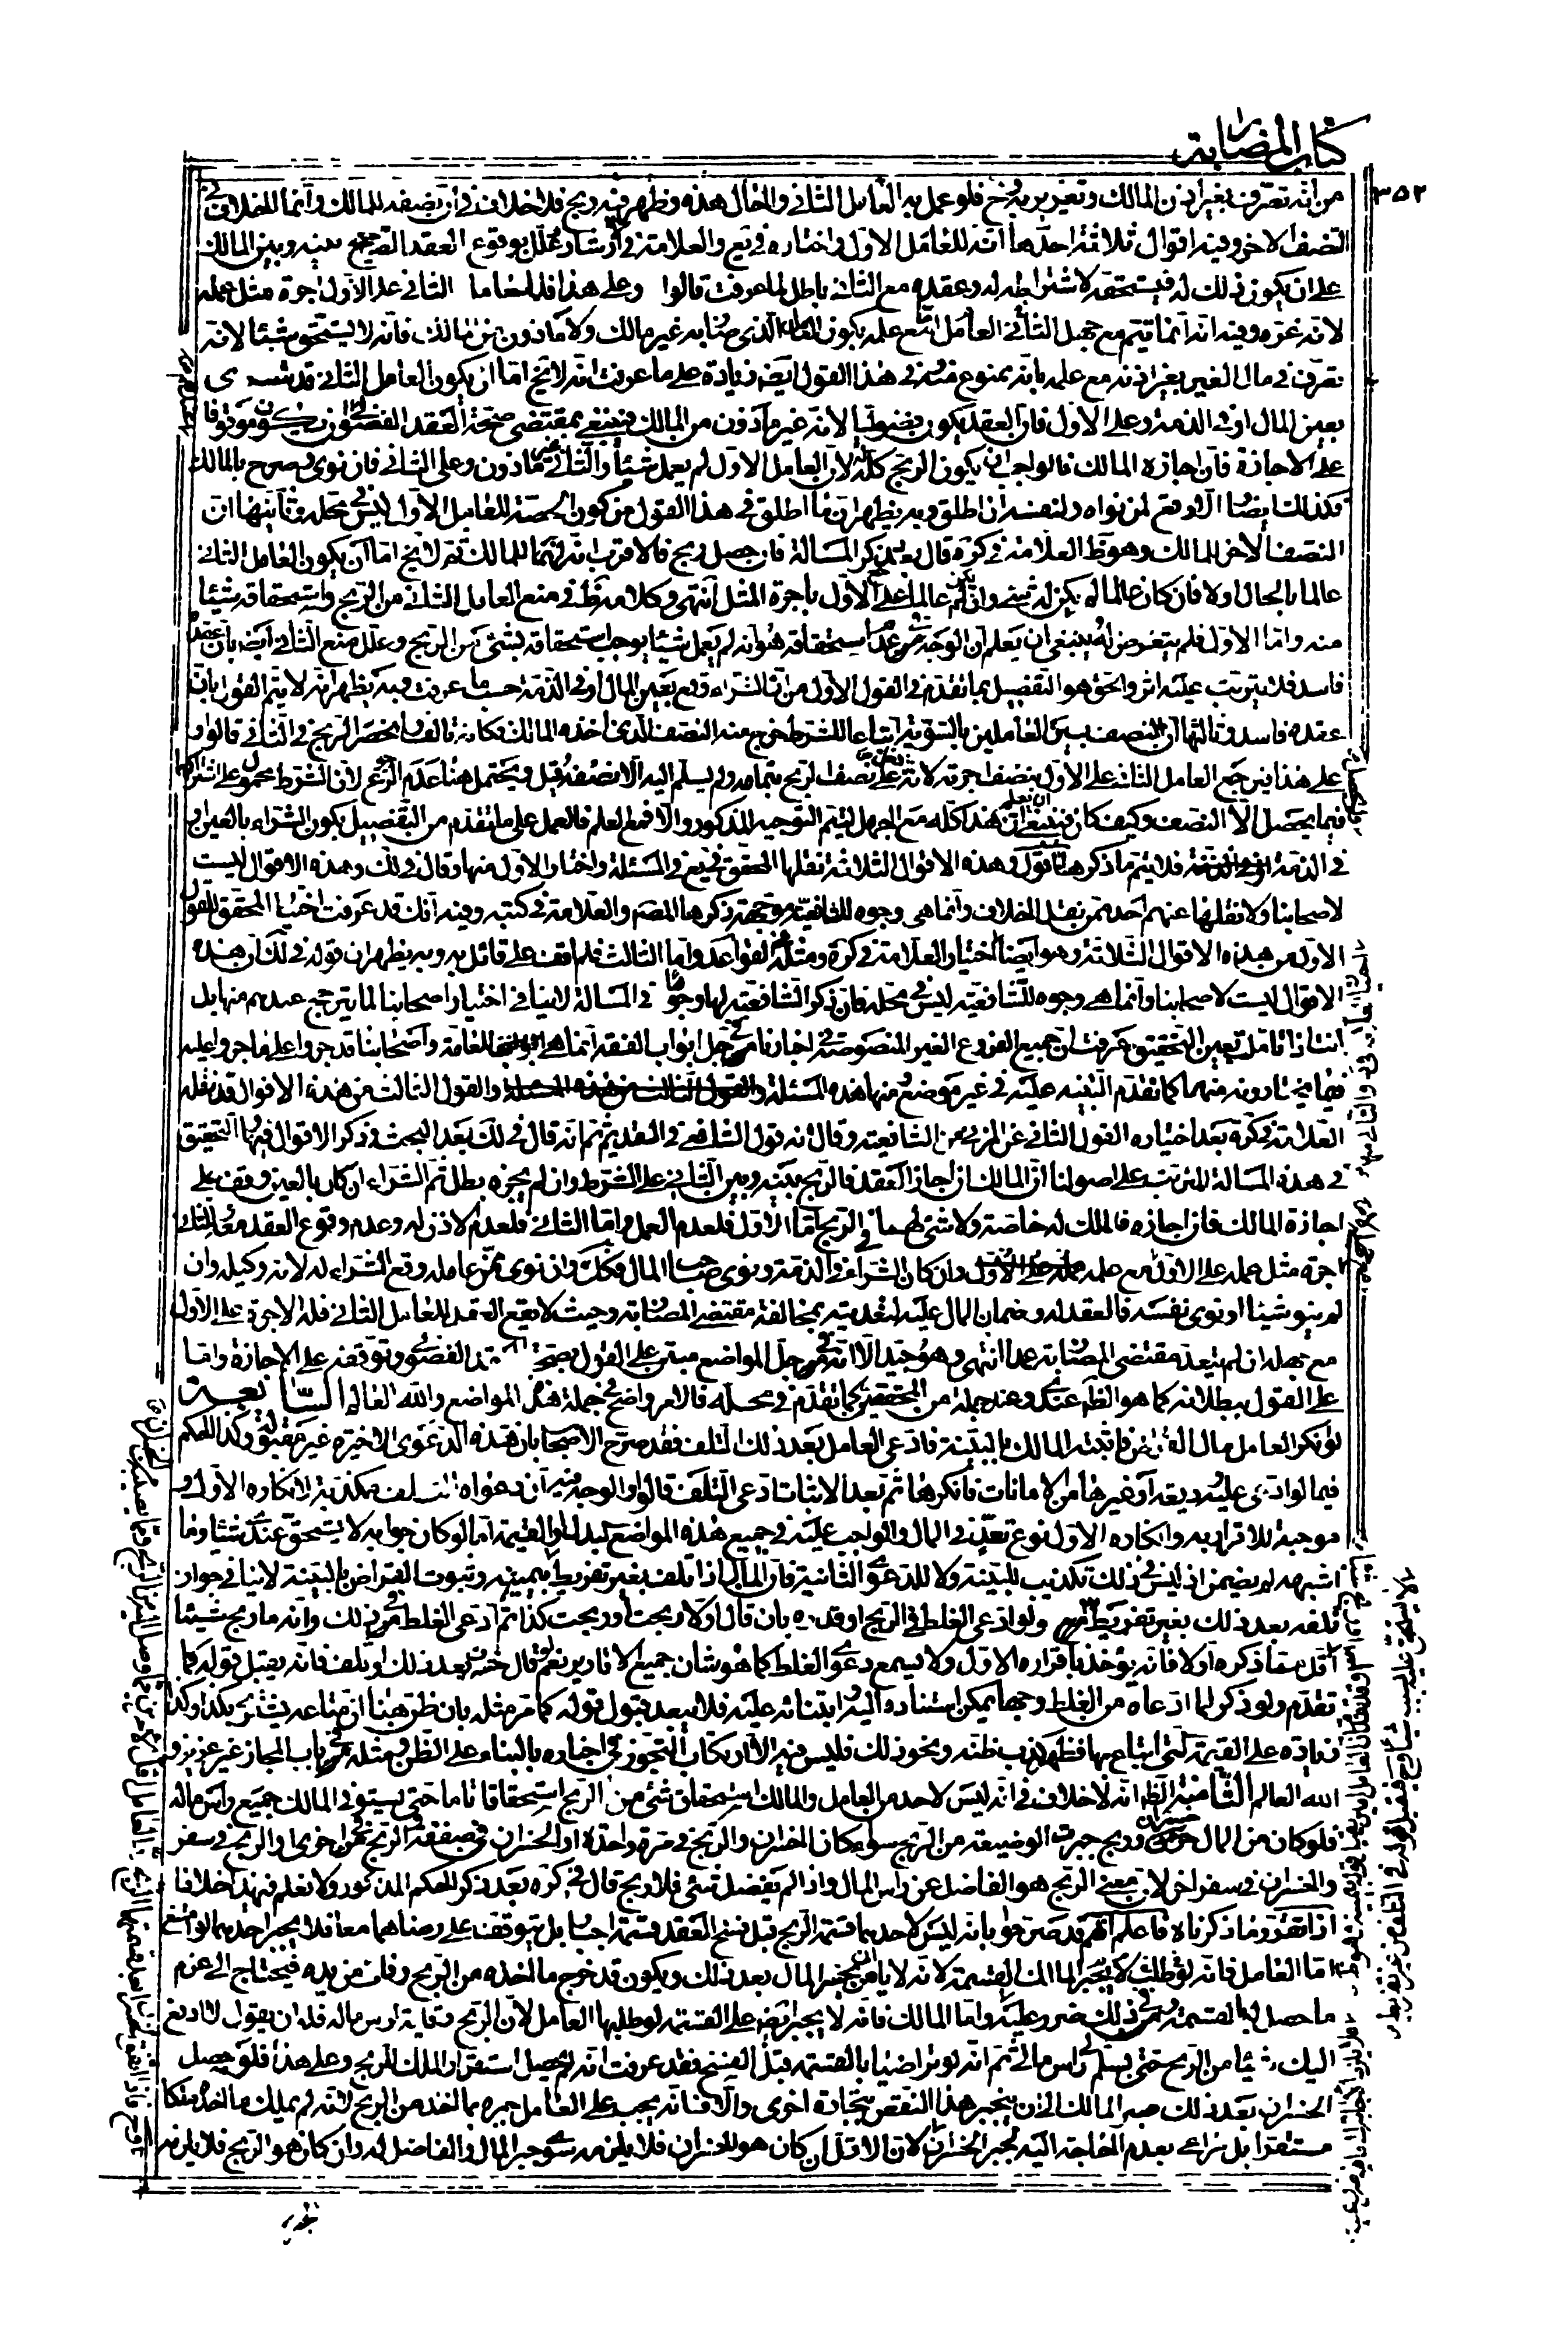 كتاب المضاربة
٣٥٢
من انه تصرف بغير اذن المالك وتغرير به وح فلو عمل به العامل الثاني والحال هذه وظهر فيه ربح فلا خلاف في ان نصفه للمالك وانما الخلاف في
النصف الاخر وفيه اقوال ثلاثة احدها انه للعامل الاول واختاره في يع والعلامة في الارشاد معللا بوقوع العقد الصحيح بينه وبين المالك
على ان يكون ذلك له فيستحقه لاشتراطه له وعقده مع الثاني باطل لما عرفت قالوا وعلى هذا فللعامل الثاني على الاول اجرة مثل عمله
لانه غره وفيه انه انما يتم مع جهل الثاني اما مع علمه بكون العامل الذي ضاربه غير مالك ولا ماذون من المالك فانه لا يستحق شيئا لانه
تصرف في مال الغير بغير اذنه مع علمه بانه ممنوع منه وفي هذا القول ايضا زيادة على ما عرفت انه لا يخ اما ان يكون العامل الثاني قد شترى
بعين المال او في الذمة وعلى الاول فان العقد يكون فضوليا لانه غير ماذون من المالك فينبغي بمقتضى صحة العقد الفضولي ان يكون موقوفا
على الاجازة فان اجازه المالك فالواجب ان يكون الربح كله له لان العامل الاول لم يعمل شيئا والثاني غير ماذون وعلى الثاني فان نوى وصرح بالمالك
فكذلك ايضا والا وقع لمن نواه ولنفسه ان اطلق وبه يظهر ان ما اطلق في هذا القول من كون الحصة للعامل الاول ليس في محله وثانيها ان
النصف الاخر للمالك وهو ظ العلامة في كره قال بعد ذكر المسالة فان حصل ربح فالاقرب انه للمالك ثم لا يخ اما ان يكون العامل الثاني
عالما بالحال اولا فان كان عالما لم يكن له شيء وان لم يكن عالما رجع على الاول باجرة المثل انتهى وكلامه ظ في منع العامل الثاني من الربح واستحقاقه شيئا
منه واما الاول فلم يتعرض له وينبغي ان يعلم ان الوجه في عدم استحقاقه هو انه لم يعمل شيئا يوجب استحقاقه لشيء من الربح وعلل منع الثاني ايضا بان عقده
فاسد فلا يترتب عليه اثر والحق هو التفصيل بما تقدم في القول الاول من ان الشراء وقع بعين المال او في الذمة حسب ما عرفت وبه يظهر انه لا يتم القول بان
عقده فاسد وثالثها ان النصف بين العاملين بالسوية اتباعا للشرط خرج منه النصف الذي اخذه المالك فكانه تالف وانحصر الربح في الثاني قالوا و
على هذا يرجع العامل الثاني على الاول بنصف اجرته لانه دخل على نصف الربح بتمامه ولم يسلم اليه الا نصفه قيل ويحتمل هنا عدم الرجوع لان الشرط محمول على اشتراكهما
فيما يحصل الا النصف وكيف كان فينبغي ان يعلم ان هذا كله مع الجهل ليتم التوجيه المذكور والا فمع العلم فالعمل على ما تقدم من التفصيل بكون الشراء بالعين او
في الذمة فلا يتم ما ذكر هنا اقول وهذه الاقوال الثلاثة نقلها المحقق في يع في المسئلة واختار الاول منها وقال في لك وهذه الاقوال ليست
لاصحابنا ولا نقلها عنهم احد ممن نقل الخلاف وانما هي وجوه للشافعية موجهة ذكرها المصنف والعلامة في كتبه وفيه انك قد عرفت اختيار المحقق للقول
الاول من هذه الاقوال الثلاثة وهو ايضا اختيار العلامة في كره ومثله في القواعد واما الثالث فلم اقف على قائل به وبه يظهر ان قوله في لك ان هذه
الاقوال ليست لاصحابنا وانما هي وجوه للشافعية ليس في محله فان ذكر الشافعية لها وجوها في المسالة لا ينافي اختيار اصحابنا لما يترجح عندهم منها بل
انت اذا تامل بعين التحقيق عرفت ان جميع الفروع الغير المنصوصة في اخبارنا من جل ابواب الفقه انما هي للعامة واصحابنا قد جروا على ما جروا عليه
فيما يختارونه منهما كما تقدم التنبيه عليه في غير موضع منها هذه المسئلة والقول الثالث من هذه الاقوال قد نقله
العلامة في كره بعد اختياره القول الثاني عن المزني من الشافعية وقال انه قول الشافعي في القديم ثم انه قال في لك بعد البحث وذكر الاقوال فيها التحقيق
في هذه المسالة المترتب على اصولنا ان المالك ان اجاز العقد فالربح بينه وبين الثاني على الشرط وان لم يجزه بطل ثم الشراء ان كان بالعين وقف على
اجازة المالك فان اجازه فالملك له خاصة ولا شيء لهما في الربح اما الاول فلعدم العمل واما الثاني فلعدم الاذن له وعدم وقوع العقد معه وللثاني
اجرة مثل عمله على الاول مع علمه وان كان الشراء في الذمة ونوى صاحب المال فكك وان نوى من عامله وقع الشراء له لانه وكيله وان
لم ينو شيئا او نوى نفسه فالعقد له وضمان المال عليه لتعديه بمخالفة مقتضى المضاربة وحيث لا يقع العقد للعامل الثاني فله الاجرة على الاول
مع جهله ان لم يتعد مقتضى المضاربة عمدا انتهى وهو جيد الا انه في جل المواضع مبني على القول بصحة العقد الفضولي وتوقفه على الاجازة واما
على القول ببطلانه كما هو الظ عندي وعند جملة من المحققين كما تقدم في محله فالامر واضح في جملة هذه المواضع والله العالم السابعة
لو انكر العامل مال القراض فاثبته المالك بالبينة فادعى العامل بعد ذلك التلف فقد صرح الاصحاب بان هذه الدعوى الاخيرة غير مقبولة وكذا الحكم
فيما لو ادعى عليه وديعة او غيرها من الامانات فانكرها ثم بعد الاثبات ادعى التلف قالوا والوجه فيه ان دعواه التلف مكذبة لانكاره الاول و
موجبة للاقرار به وانكاره الاول نوع تعد في المال والواجب عليه في جميع هذه المواضع البدل او القيمة اما لو كان جوابه لا يستحق عندي شيئا وما
اشبهه لم يضمن اذ ليس في ذلك تكذيب للبينة ولا للدعوى الثانية فان المال اذا تلف بغير تفريط بيمينه وثبوت القراض بالبينة لا ينافي جواز
تلفه بعد ذلك بغير تفريط ولو ادعى الغلط في الربح او قدره بان قال اولا ربحت او ربحت كذا ثم ادعى الغلط في ذلك وانه ما ربح شيئا
اقل مما ذكره اولا فانه يؤخذ باقراره الاول ولا يسمع دعوى الغلط كما هو شان جميع الاقارير نعم لو قال خسرت بعد ذلك او تلف فانه يقبل قوله كما
تقدم ولو ذكر لما ادعاه من الغلط وجها يمكن استناده اليه ابتنائه عليه فلا يبعد قبول قوله كما مر مثله بان ظن هنا ان متاعه يشترى بكذا وكذا
زيادة على القيمة التي ابتاع بها فظهر كذب ظنه ونحو ذلك فليس فيه الا ارتكاب التجوز في اخباره بالبناء على الظن ومثله في باب المجاز غير عزيز و
الله العالم الثامنة الظ انه لا خلاف في انه ليس لاحد من العامل والمالك استحقاق شيء من الربح استحقاقا تاما حتى يستوفي المالك جميع راس ماله
فلو كان من المال خسران وربح جبرت الوضيعة من الربح سواء كان الخسران والربح في مرة واحدة او الخسران في صفقة والربح في اخرى او الربح في سفر
والخسران في سفر اخر لان معنى الربح هو الفاضل عن راس المال واذا لم يفضل شيء فلا ربح قال في كره بعد ذكر الحكم المذكور ولا نعلم في هذا خلافا
اذا تقرر ما ذكرناه فاعلم انهم قد صرحوا بانه ليس لاحدهما قسمة الربح قبل فسخ العقد قسمة اجبار بل يتوقف على رضاهما معا فلا يجبر احدهما لو امتنع
اما العامل فانه لو طلب لا يجبر المالك القسمة لانه لا يامن ان يخسر المال بعد ذلك ويكون قد خرج ما اخذه من الربح وفات من يده فيحتاج الى غرم
ما حصل له بالقسمة وفي ذلك ضرر عليه واما المالك فانه لا يجبر ايضا على القسمة لو طلبها العامل لان الربح وقاية لراس ماله فله ان يقول لا ادفع
اليك شيئا من الربح حتى يسلم لي راس مالي ثم انه لو تراضيا بالقسمة قبل الفسخ فقد عرفت انه لم يحصل استقرار الملك للربح وعلى هذا فلو حصل
الخسران بعد ذلك صبر المالك الى ان يجبر هذا النقص بتجارة اخرى والا فانه يجب على العامل جبره بما اخذ من الربح لانه لم يملك ما اخذ ملكا
مستقرا بل مراعى بعدم الحاجة اليه لجبر الخسران لان الاقل ان كان هو الخسران فلا يلزمه سوى جبر المال والفاضل له وان كان هو الربح فلا يلزمه